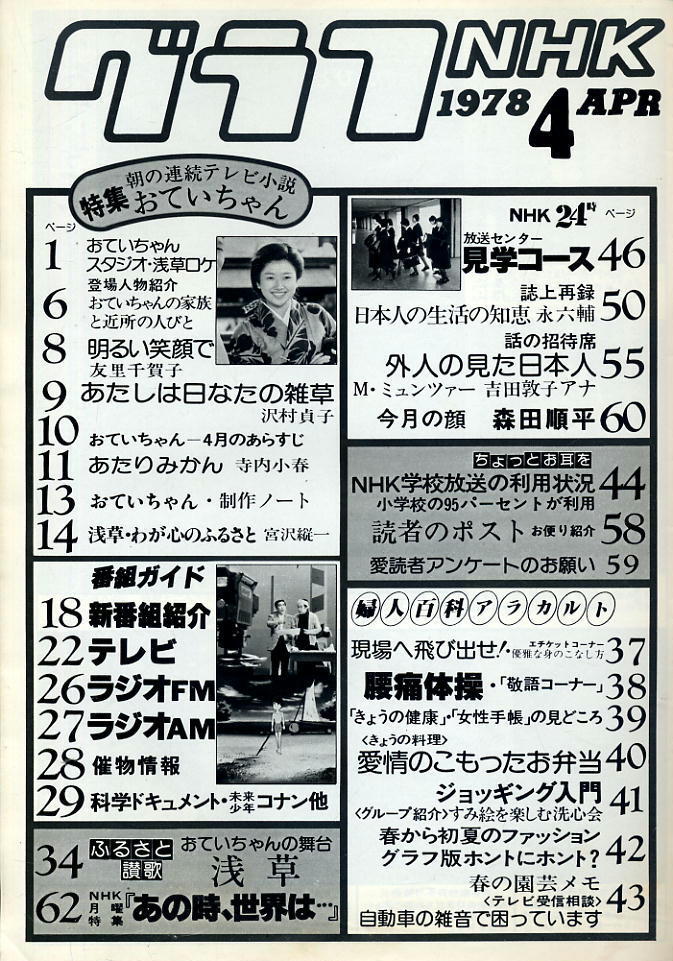 グラフNHK
1978 4 APR
特集 朝の連続テレビ小説
おていちゃん
ページ
1 おていちゃん
スタジオ・浅草ロケ
登場人物紹介
6 おていちゃんの家族
と近所の人びと
8 明るい笑顔で
友里千賀子
9 あたしは日なたの雑草
沢村貞子
10 おていちゃん—4月のあらすじ
11 あたりみかん 寺内小春
13 おていちゃん・制作ノート
14 浅草・わが心のふるさと 宮沢縦一
番組ガイド
18 新番組紹介
22 テレビ
26 ラジオFM
27 ラジオAM
28 催物情報
29 科学ドキュメント・未来少年コナン他
34 ふるさと讃歌 おていちゃんの舞台
浅草
62 NHK月曜特集 『あの時、世界は…』
NHK 24時 ページ
放送センター
見学コース 46
誌上再録
日本人の生活の知恵 永六輔 50
話の招待席
外人の見た日本人 55
M・ミュンツァー 吉田敦子アナ
今月の顔 森田順平 60
ちょっとお耳を
NHK学校放送の利用状況 44
小学校の95パーセントが利用
読者のポスト お便り紹介 58
愛読者アンケートのお願い 59
婦人百科アラカルト
現場へ飛び出せ!・エチケットコーナー 優雅な身のこなし方 37
腰痛体操・「敬語コーナー」 38
「きょうの健康」・「女性手帳」の見どころ 39
〈きょうの料理〉
愛情のこもったお弁当 40
ジョッギング入門 41
〈グループ紹介〉すみ絵を楽しむ洗心会
春から初夏のファッション 42
グラフ版ホントにホント?
春の園芸メモ 43
〈テレビ受信相談〉
自動車の雑音で困っています